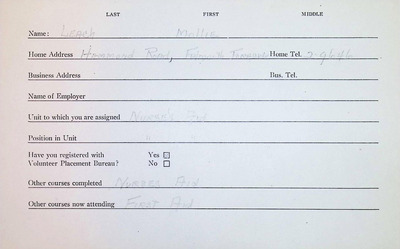 LAST FIRST MIDDLE
Name: Leach Mollie
Home Address Hammond Road, Home Tel. 2-9646
Business Address Bus. Tel.
Name of Employer
Unit to which you are assigned Nurse's Aid
Position in Unit " "
Have you registered with Yes
Volunteer Placement Bureau? No
Other courses completed Nurses Aid
Other courses now attending First Aid